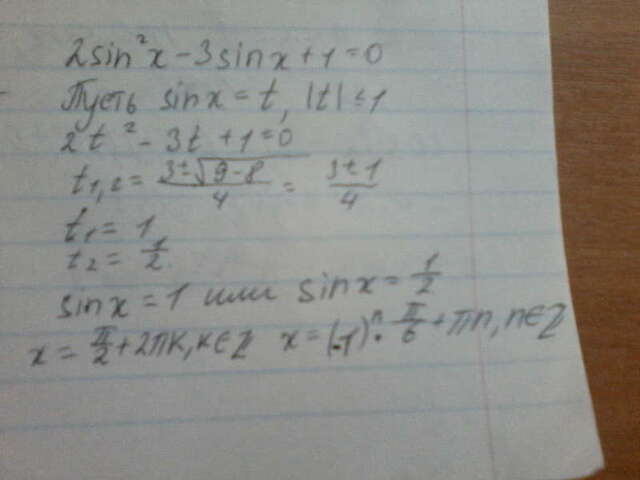 2sin²x - 3sinx + 1 = 0
Пусть sinx = t, |t| ≤ 1
2t² - 3t + 1 = 0
t₁,₂ = (3±√(9-8))/4 = (3±1)/4
t₁ = 1
t₂ = 1/2
sinx = 1 или sinx = 1/2
x = π/2 + 2πk, k∈Z x = (-1)ⁿ · π/6 + πn, n∈Z